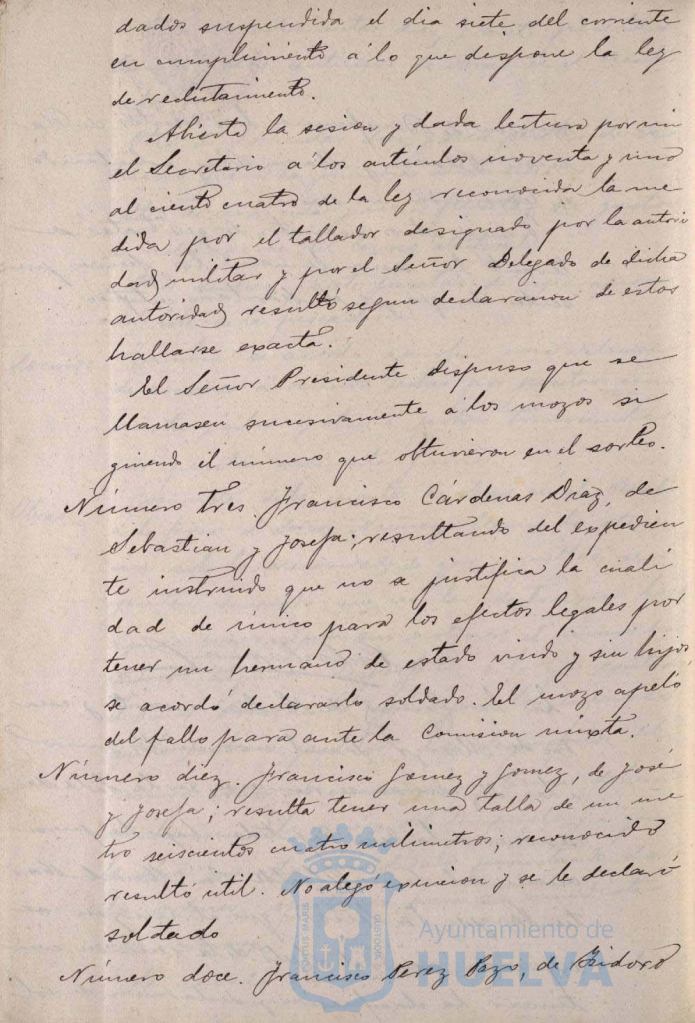 dados suspendida el dia siete del corriente
en cumplimiento á lo que dispone la ley
de reclutamiento.
Abierta la sesion y dada lectura por mi
el Secretario á los artículos noventa y uno
al ciento cuatro de la ley reconocida la me
dida por el tallador designado por la autori
dad militar y por el Señor Delegado de dicha
autoridad resultó segun declaracion de estos
hallarse exacta.
El Señor Presidente dispuso que se
llamasen sucesivamente á los mozos si
guiendo el número que obtuvieron en el sorteo.
Número tres. Francisco Cárdenas Diaz, de
Sebastian y Josefa; resultando del expedien
te instruido que no se justifica la cuali
dad de único para los efectos legales por
tener un hermano de estado viudo y sin hijos,
se acordó declararlo soldado. El mozo apeló
del fallo para ante la Comision mixta.
Número diez. Francisco Gomez y Gomez, de José
y Josefa; resulta tener una talla de un me
tro seiscientos cuatro milimetros; reconocido
resultó útil. No alegó exencion y se le declaró
soldado
Número doce. Francisco Perez Pazo, de Isidoro
Ayuntamiento de
HUELVA
PORTUS MARIS